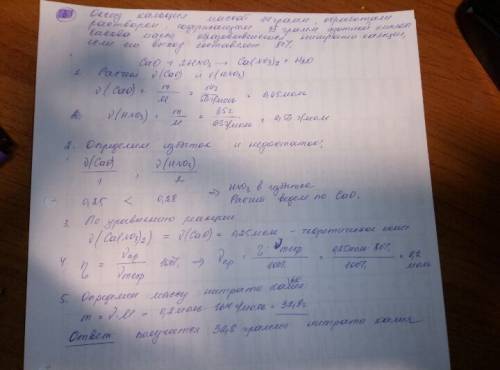 Оксид кальция массой 14 грамм, обработали
раствором, содержащим 35 грамм азотной кислоты
масса образовавшегося нитрата кальция,
если его выход составляет 80%.
CaO + 2HNO₃ → Ca(NO₃)₂ + H₂O
1. Расчёт ν(CaO) и ν(HNO₃)
ν(CaO) = m/M = 14г/56г/моль = 0,25 моль
ν(HNO₃) = m/M = 35г/63г/моль = 0,55 моль
2. Определим избыток и недостаток:
ν(CaO)/1 , ν(HNO₃)/2
0,25 < 0,28 ⇒ HNO₃ в избытке
Расчёт ведём по CaO.
3. По уравнению реакции
ν(Ca(NO₃)₂) = ν(CaO) = 0,25 моль -
4. η = νпр/νтеор · 100% → νпр = η · νтеор/100% = 0,25 моль · 80%/100% = 0,2 моль
5. Определим массу нитрата
m = ν · M = 0,2 моль · 164 г/моль = 32,8 г
Ответ получается 32,8 грамма нитрата калия